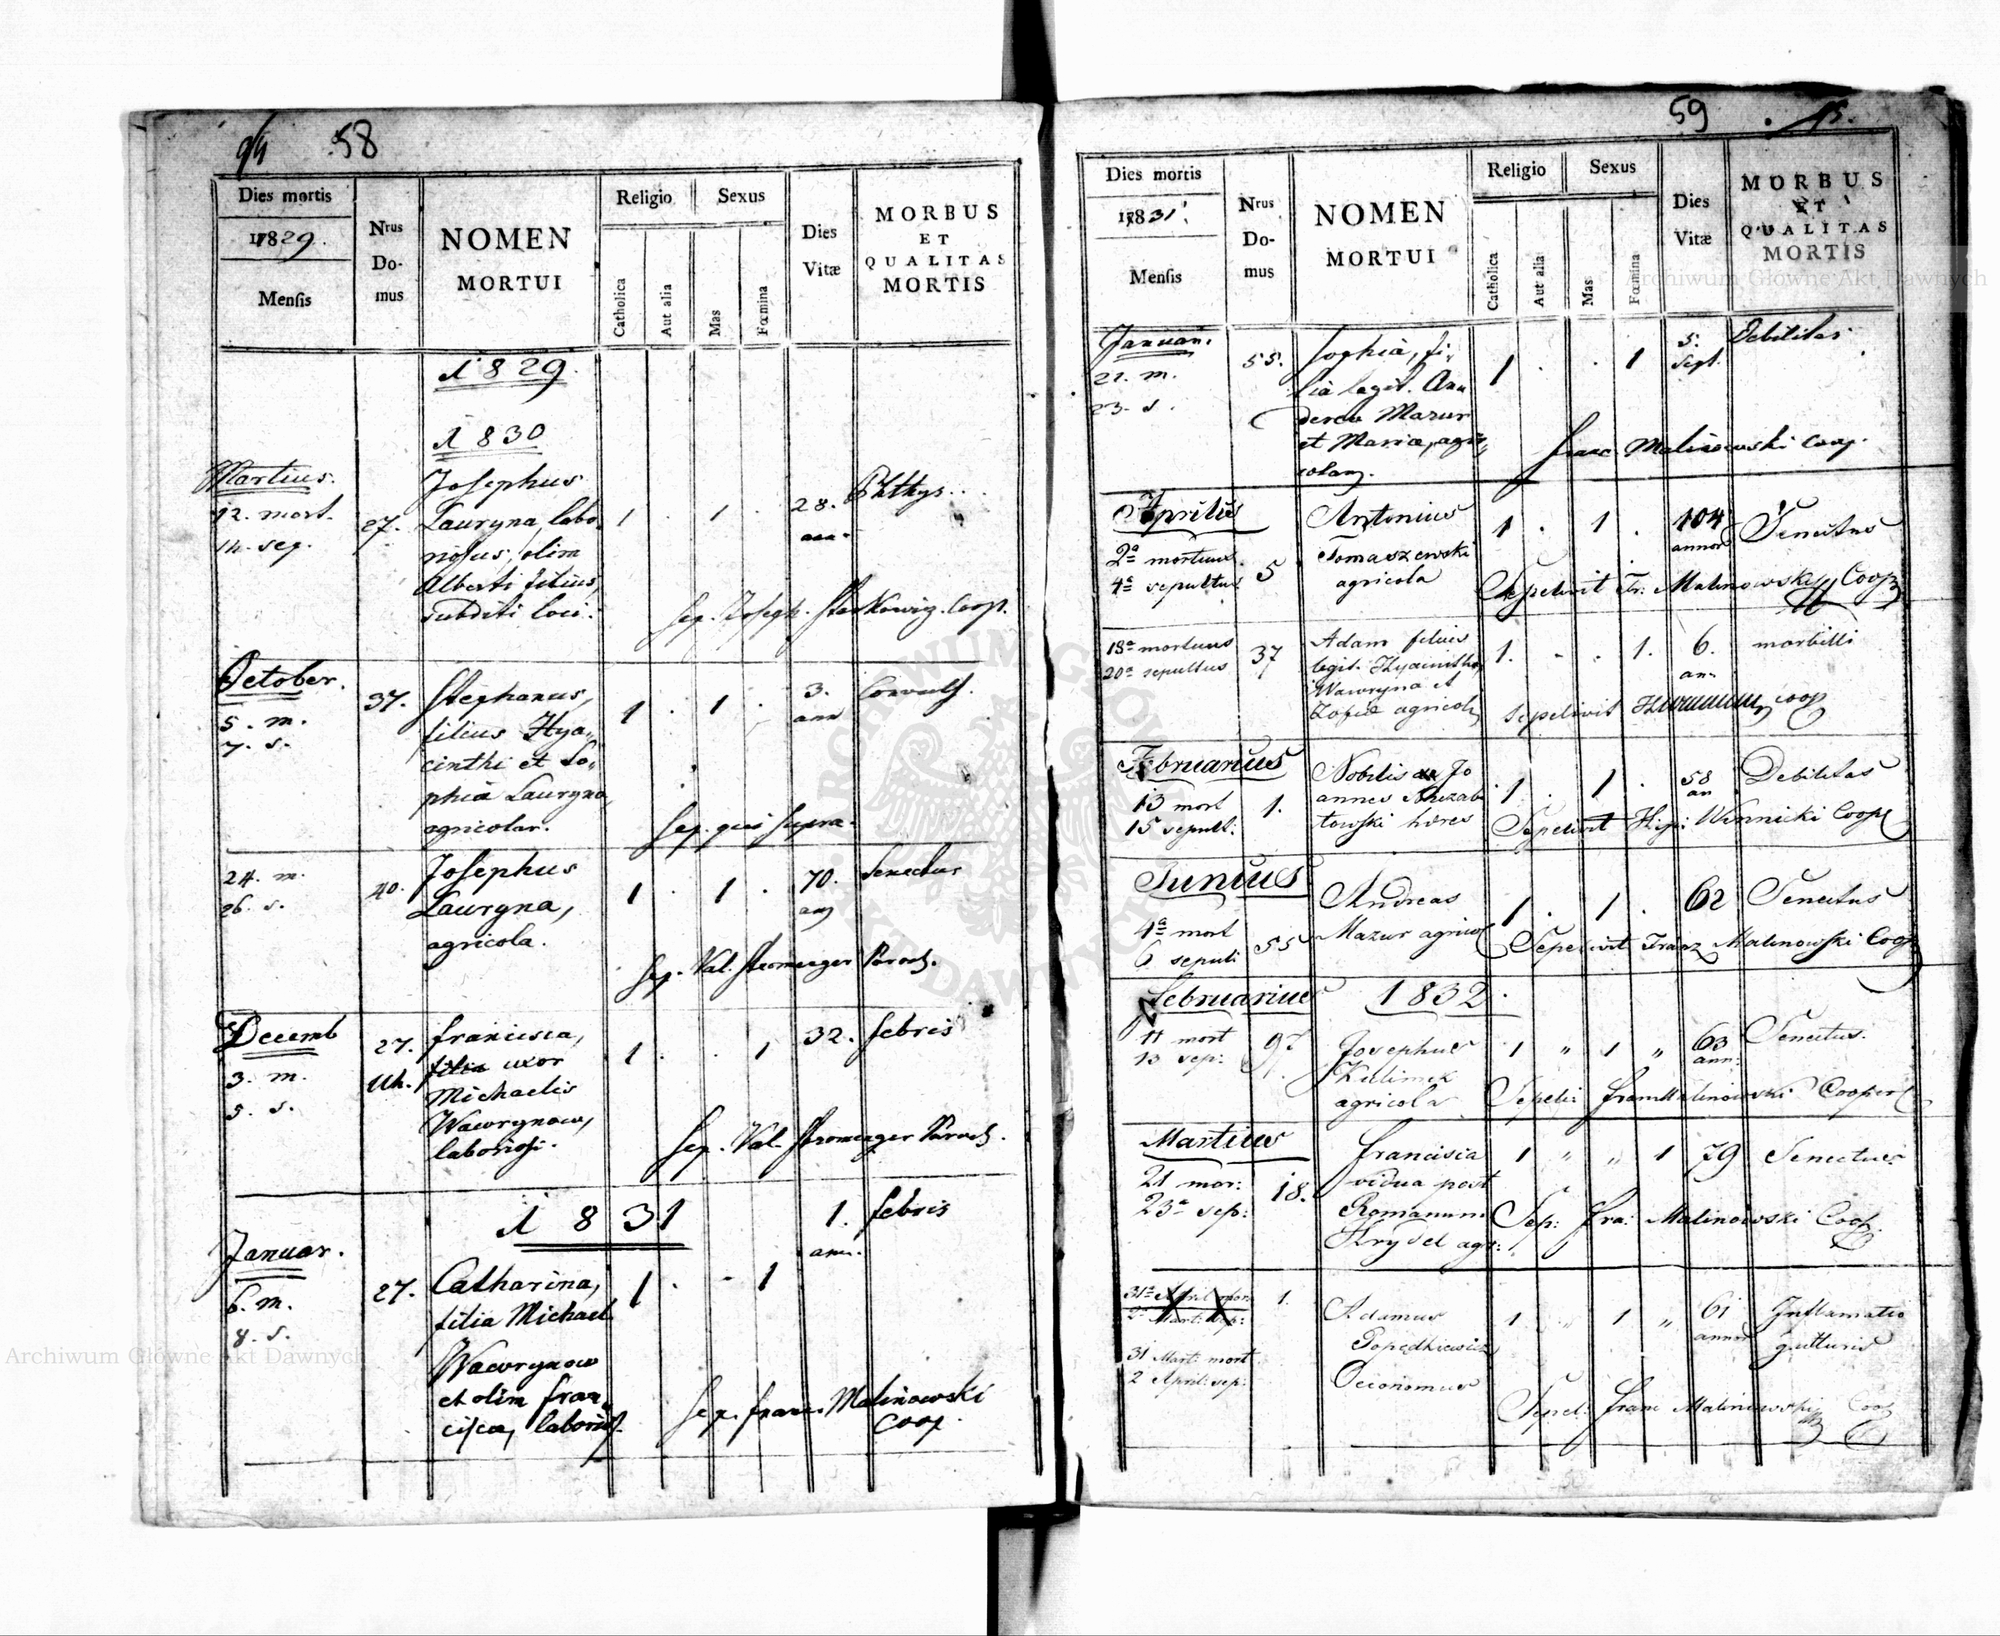 94 58
Dies mortis
1829.
Mensis
Nrus
Do-
mus
NOMEN
MORTUI
Religio
Catholica
Aut alia
Sexus
Mas
Fœmina
Dies
Vitæ
MORBUS
ET
QUALITAS
MORTIS
1829.
1830
Martius.
12. mort.
14. sep.
27.
Josephus
Lauryna, labo
riosus, olim
Alberti filius,
subditi loci.
1 . 1 .
28.
ann.
Phthys..
Sep. Joseph. Coop.
October.
5. m.
7. s.
37.
Stephanus,
filius Hya-
cinthi et So-
phia Lauryna,
agricolar.
1 . 1 .
3.
ann
Convuls.
Sep. qui supra.
24. m.
26. s.
40.
Josephus
Lauryna,
agricola.
1 . 1 .
70.
ann
Senectus
Sep. Val. Stromenger Paroch.
Decemb
3. m.
5. s.
27.
francisca,
filia uxor
Michaelis
Wawrynow,
laboriosi.
1 . . 1
32.
febris
Sep. Val. Stromenger Paroch.
1831
Januar.
6. m.
8. s.
27.
Catharina,
filia Michael
Wawrynow
et olim fran-
cisca, laborios.
1 . - 1
1.
ann.
febris
Sep. franc. Malinowski
Coop.
59
Dies mortis
1831.
Mensis
Nrus
Do-
mus
NOMEN
MORTUI
Religio
Catholica
Aut alia
Sexus
Mas
Fœmina
Dies
Vitæ
MORBUS
ET
QUALITAS
MORTIS
Januari.
21. m.
23. s.
55.
Sophia, fi-
lia legit. An
dereu Mazur
et Maria, agri-
colam.
1 . . 1
5.
sept.
Debilitas
franc. Malinowski Coop.
Aprilis
2a mortuus
4a sepultus
5
Antonius
Tomaszewski
agricola
1 . 1 .
104
annor
Senectus
Sepelivit Fr: Malinowski Coop
18a mortuus
20a sepultus
37
Adam filius
legit. Hyacinthi
Wawryna et
Zofia agricol
1. - . 1.
6.
an.
morbilli
Sepelivit coop
Februarius
13 mort
15 sepult:
1.
Nobilis Jo
annes
towski hæres
1 . 1 .
58
an
Debilitas
Sepelivit Hip: Winnicki Coop
Junius
4a mort
6 sepult:
55
Andreas
Mazur agricol
1 . 1 .
62
Senectus
Sepelivit Franz Malinowski Coop
Februarius 1832.
11 mort
13 sep:
97
Josephus
Kulimek
agricola
1 " 1 "
63
ann:
Senectus.
Sepeli: fran Malinowski Cooper
Martius
21 mor:
23a sep:
18.
francisca
vidua post
Romanum
Krydel agr:
1 " " 1
79
Senectus
Sep: fra: Malinowski Coop.
31a April mor:
2a Mart: sep:
31 Mart: mort
2 April: sep:
1.
Adamus
Popedkiewicz
Oeconomus
1 " 1 "
61
annor
Inflamatio
gutturis
Sepel: franc Malinowski Coop
Archiwum Główne Akt Dawnych
Archiwum Główne Akt Dawnych
ARCHIWUM GŁÓWNE AKT DAWNYCH